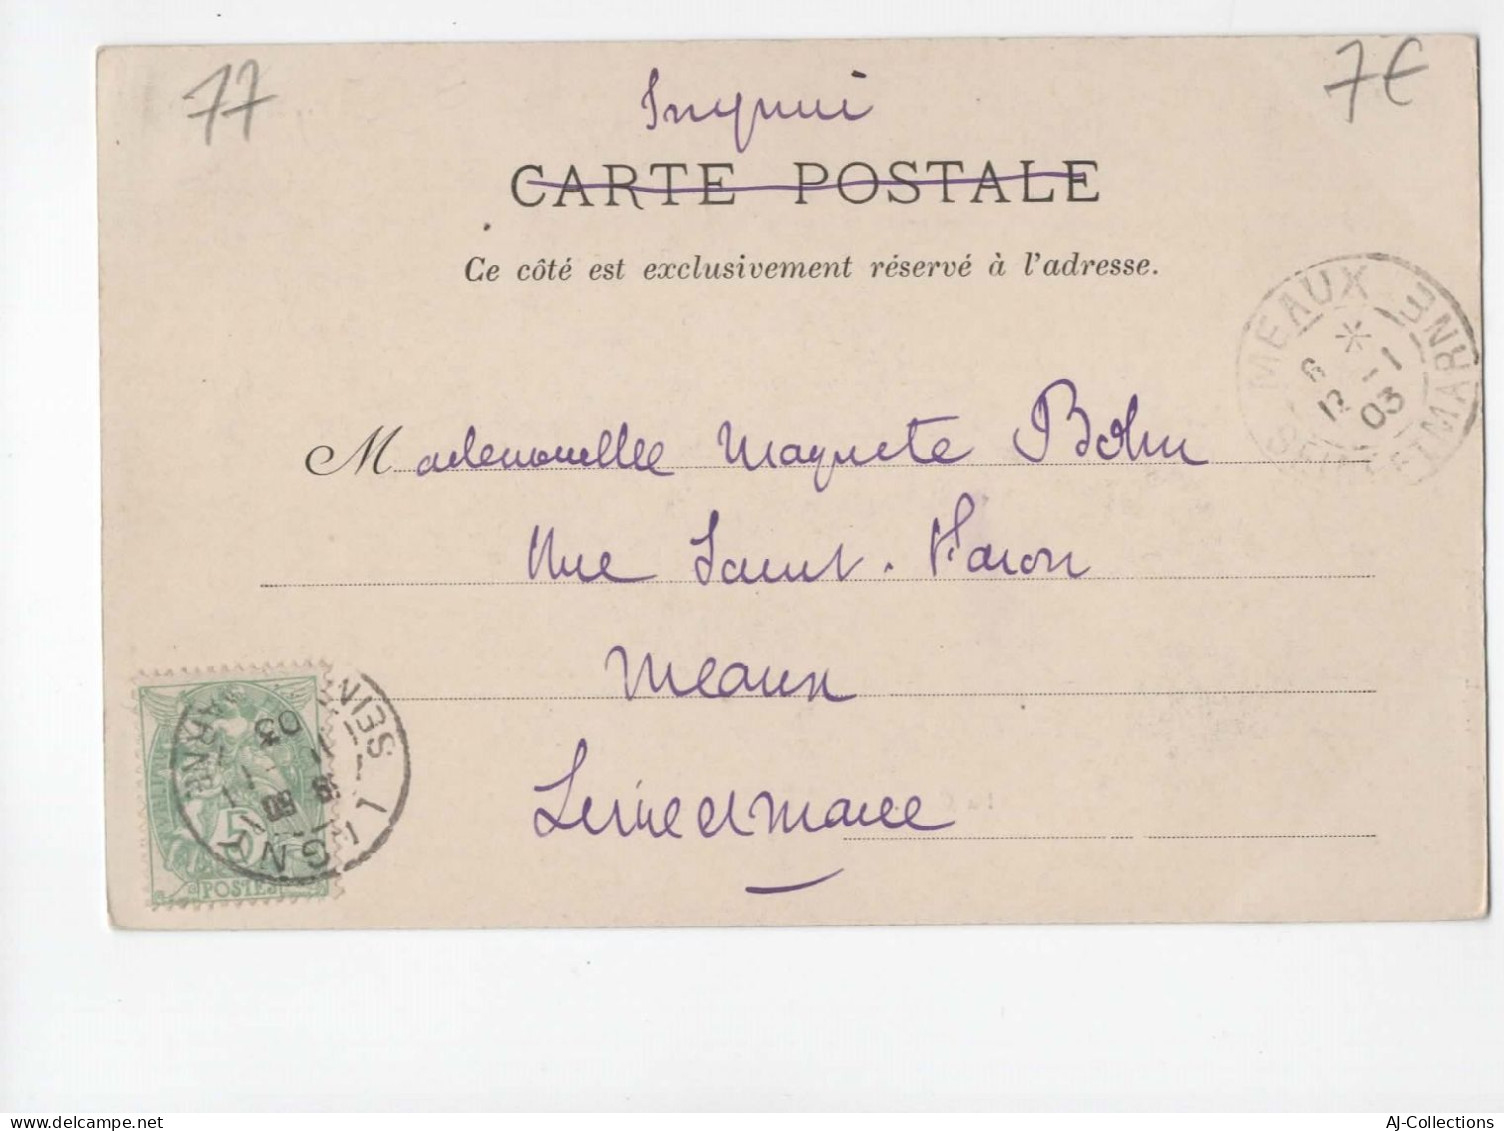 77
7€
Imprimé
CARTE POSTALE
Ce côté est exclusivement réservé à l'adresse.
MEAUX
SEINE ET MARNE
6 * 1-1
12 03
Mademoiselle Maguete Bohn
Rue Saint-Faron
Meaux
Seine et Marne
LAGNY
SEINE
MARNE
03
5
POSTES
AJ-Collections